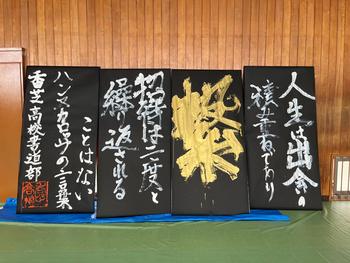 人生は出会の
積み重ねであり
繋
招待は二度と
繰り返される
ことはない
ハンス・カロッサの言葉
香芝高校書道部